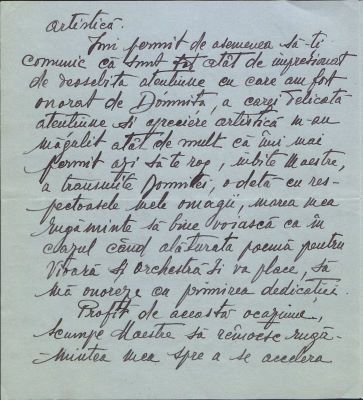 artistică.
Îmi permit de asemenea să-ți
comunic că sunt tot atât de impresionat
de deosebita atențiune cu care am fost
onorat de Domnița, a cărei delicată
atențiune și apreciere artistică m-au
măgulit atât de mult că îmi mai
permit azi să te rog, iubite Maestre,
a transmite Domniței, odată cu res-
pectoasele mele omagii, marea mea
rugăminte să bine voiască ca în
cazul când alăturata poemă pentru
Vioară și Orchestră îi va place, să
mă onoreze cu primirea dedicației.
Profit de această ocaziune,
scumpe Maestre să reînoesc rugă-
mintea mea spre a se accelera